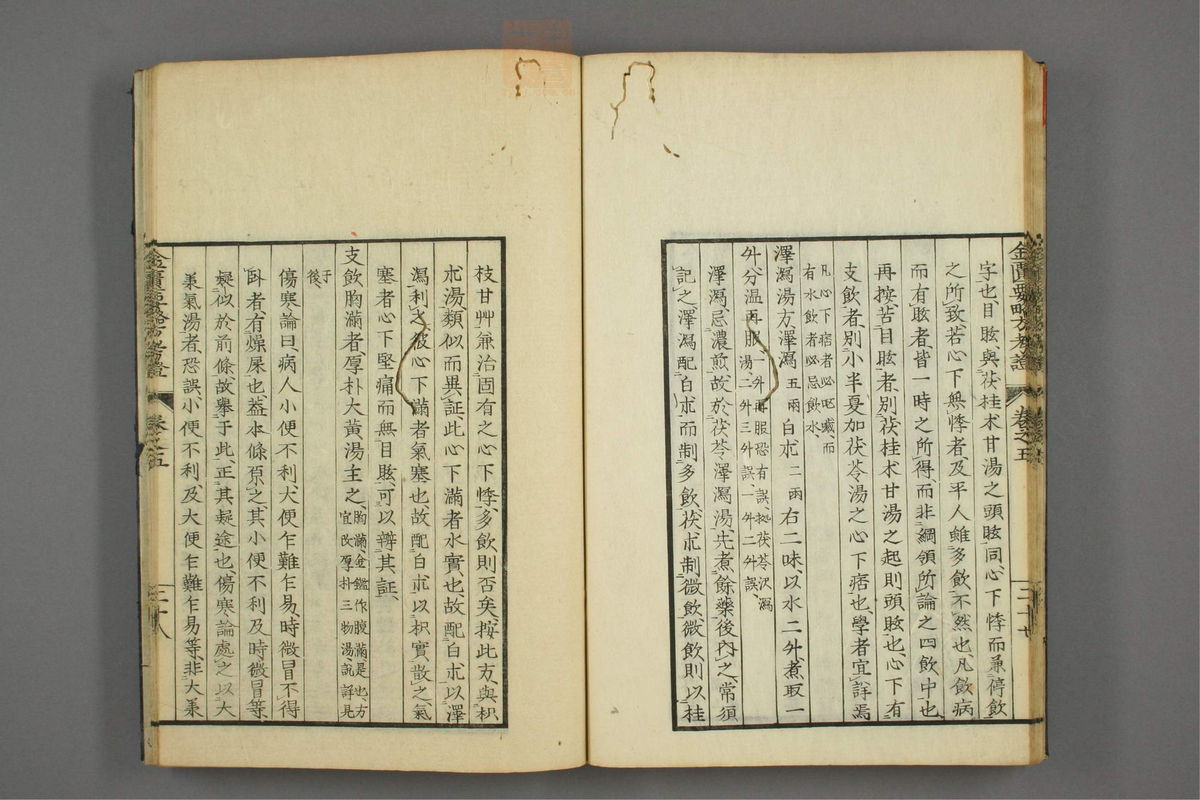 金匱要略方考證 卷之五 三十七
字也目眩與茯桂朮甘湯之頭眩同心下悸而兼停飲
之所致若心下無悸者及平人雖多飲不然也凡飲病
而有眩者皆一時之所得而非綱領所論之四飲中也
再按苦目眩者別茯桂朮甘湯之起則頭眩也心下有
支飲者別小半夏加茯苓湯之心下痞也學者宜詳焉
凡心下痞者必吧噦而
有水飲者必忌飲水
澤瀉湯方澤瀉五兩白朮二兩右二味以水二升煮取一
升分温再服一升再服恐有誤按茯苓沢瀉
湯二升三升誤一升二升誤
澤瀉忌濃煎故於茯苓澤瀉湯先煮餘藥後內之常須
記之澤瀉配白朮而制多飲茯朮制微飲微飲則以桂
枝甘艸兼治固有之心下悸多飲則否矣按此方與枳
朮湯類似而異証此心下滿者水實也故配白朮以澤
瀉利之彼心下滿者氣塞也故配白朮以枳實散之氣
塞者心下堅痛而無目眩可以辯其証
支飲胸滿者厚朴大黃湯主之胸滿金鑑作腹滿是也方
宜改厚朴三物湯說詳見
于
後
傷寒論曰病人小便不利大便乍難乍易時微冒不得
臥者有燥屎也蓋本條原之其小便不利及時微冒等
疑似於前條故擧于此正其疑途也傷寒論處之以大
承氣湯者恐誤小便不利及大便乍難乍易等非大承
金匱要略方考證 卷之五 三十八